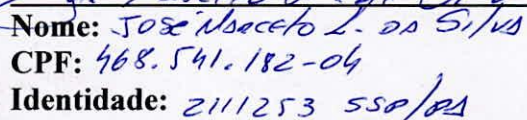 Nome: José Marcelo L. da Silva
CPF: 468.541.182-04
Identidade: 2111253 SSP/PA